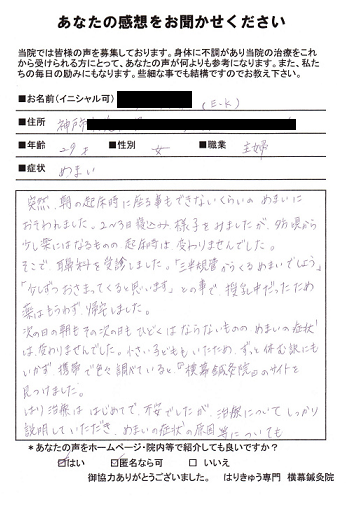 あなたの感想をお聞かせください
当院では皆様の声を募集しております。身体に不調があり当院の治療をこれ
から受けられる方にとって、あなたの声が何よりも参考になります。また、私た
ちの毎日の励みにもなります。些細な事でも結構ですのでお教え下さい。
■お名前(イニシャル可) (E・K)
■住所 神戸
■年齢 29才 ■性別 女 ■職業 主婦
■症状 めまい
突然、朝の起床時に座る事もできないくらいのめまいに
おそわれました。2〜3日寝込み様子をみましたが、夕方頃から
少し楽にはなるものの起床時は変わりませんでした。
そこで、耳鼻科を受診しました。「三半規管からくるめまいでしょう」
「少しずつおさまってくると思います」との事で授乳中だったため
薬はもらわず、帰宅しました。
次の日の朝もその次の日もひどくはならないもののめまいの症状
は変わりませんでした。小さい子どももいたため、ずっと休む訳にも
いかず、携帯で色々調べていると『横幕鍼灸院』のサイトを
見つけました。
はり治療ははじめてで、不安でしたが、治療についてしっかり
説明していただき、めまいの症状の原因等についても
*あなたの声をホームページ・院内等で紹介しても良いですか?
☑はい ☑匿名なら可 □いいえ
御協力ありがとうございました。 はりきゅう専門 横幕鍼灸院